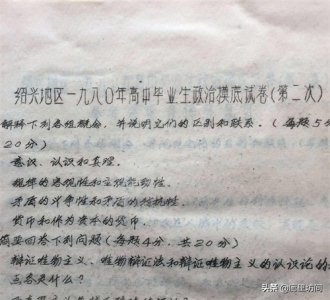 绍兴地区一九八〇年高中毕业生政治摸底试卷(第二次)
解释下列各组概念，并说明它们的区别和联系。(每题5分
20分)
意识、认识和真理。
规律的客观性和主观能动性。
矛盾的斗争性和矛盾的对抗性。
货币和作为资本的货币。
简要回答下列问题(每题4分，共20分)
辩证唯物主义、唯物辩证法和辩证唯物主义的认识论的
三者是什么?
头条 @闻程坊间